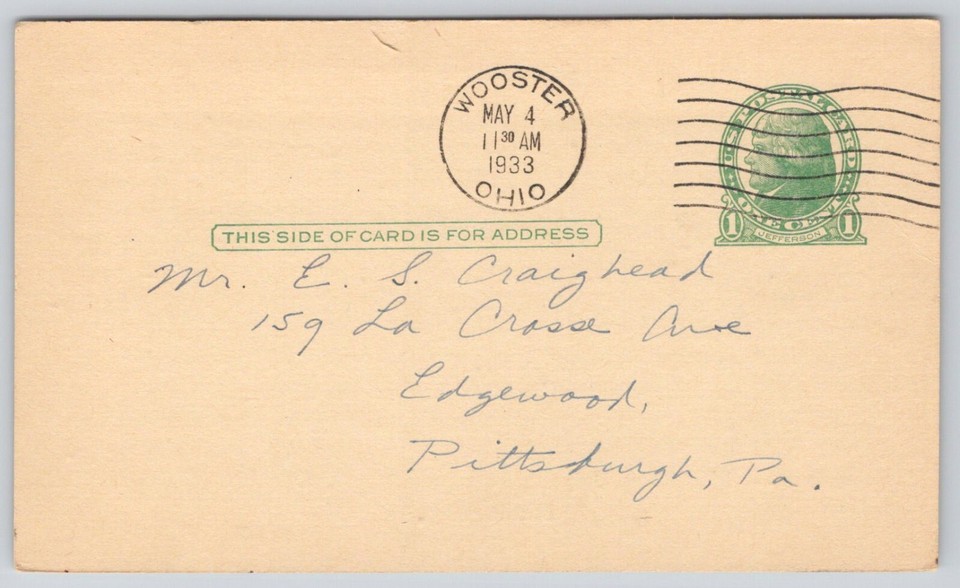 WOOSTER
MAY 4
11 30 AM
1933
OHIO
U.S. POSTAL CARD
ONE CENT
1 JEFFERSON 1
THIS SIDE OF CARD IS FOR ADDRESS
Mr. E. S. Craighead
159 La Crosse Ave
Edgewood,
Pittsburgh, Pa.